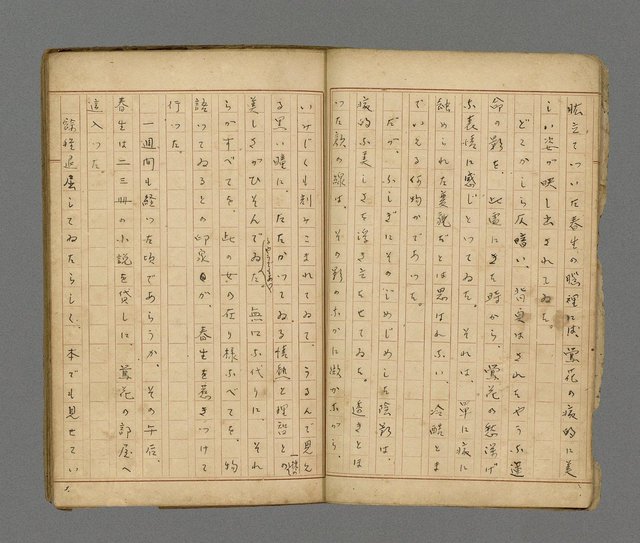 眩立てついた春生の脳裡には、鶯花の病的に美
しい姿が映し出されてゐた。
どこかしら仄暗い、背負はされたやうな運
命の影を、此處にきた時から、鶯花の愁ひげ
な表情に感じとつてゐた。それは、單に病に
蝕められた憂貌だとは思はれない、冷酷とま
でいえる何物かであつた。
だが、ふしぎにそのじめじめした陰影は、
病的な美しさを浮き立たせてゐる。透きとほ
つた顔の線は、その影のなかに
いみじくも刻みこまれてゐて、うるんで見え
る黒い瞳に、たたかつてゐる情熱と理智との
美しさがひそんでゐた。無口な代りに、それ
らがすべてを、此の女の在り様すべてを、物
語つてゐるとの印象が、春生を惹きつけて
行つた。
一週間も経つた頃であらうか、その午后、
春生は二三冊の小説を貸しに、鶯花の部屋へ
這入つた。
餘程退屈してゐたらしく、本でも見せてい